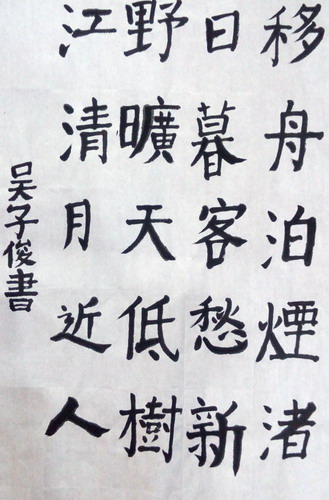 移舟泊煙渚
日暮客愁新
野曠天低樹
江清月近人
吴子俊書